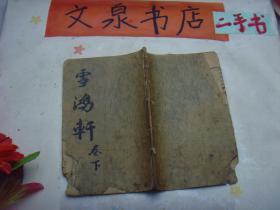 文泉书店
二手书
雪鸿軒
卷下